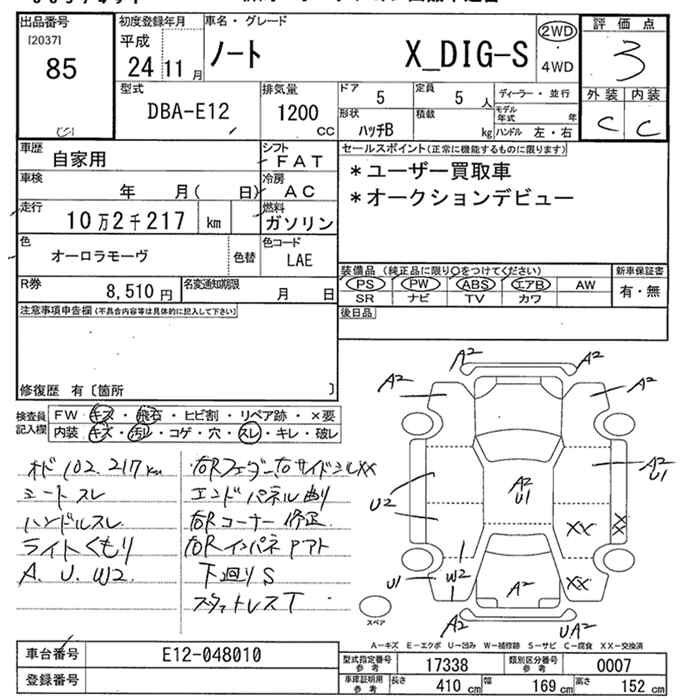 出品番号
[2037]
85
初度登録年月
平成
24 11 月
車名・グレード
ノート X_DIG-S
2WD
4WD
評価点
3
外装 内装
C C
型式
DBA-E12
排気量
1200 CC
ドア
5
定員
5 人
形状
ハッチB
積載
kg
ディーラー・並行
モデル年式 年
ハンドル 左・右
車歴
自家用
シフト
FAT
車検
年 月( 日)
冷房
AC
走行
10万2千217 km
燃料
ガソリン
色
オーロラモーヴ
色替
色コード
LAE
R券
8,510 円
名変通知期限
月 日
セールスポイント(正常に機能するものに限ります)
*ユーザー買取車
*オークションデビュー
装備品 (純正品に限り〇をつけてください)
PS PW ABS エアB AW
SR ナビ TV カワ
新車保証書
有・無
後日品
注意事項申告欄(不具合内容等は具体的に記入して下さい)
修復歴 有〔箇所 〕
検査員記入欄
FW キズ・飛石・ヒビ割・リペア跡・×要
内装 キズ・汚れ・コゲ・穴・スレ・キレ・破レ
オド102.217km
シートスレ
ハンドルスレ
ライトくもり
A.U.W2
右Rフェンダー右サイドシルXX
エンドパネル曲り
右Rコーナー修正
右Rインパネ
下廻りS
スタットレスT
A2 A2
A2 A2
U2
A2
U1
A2
U1
XX XX
U1 W2 XX
A2
A2 UA2
スペア
A-キズ E-エクボ U-凹み W-補修跡 S-サビ C-腐食 XX-交換済
車台番号
E12-048010
登録番号
型式指定番号 参考
17338
類別区分番号 参考
0007
車庫証明用 参考
長さ 410 cm 幅 169 cm 高さ 152 cm